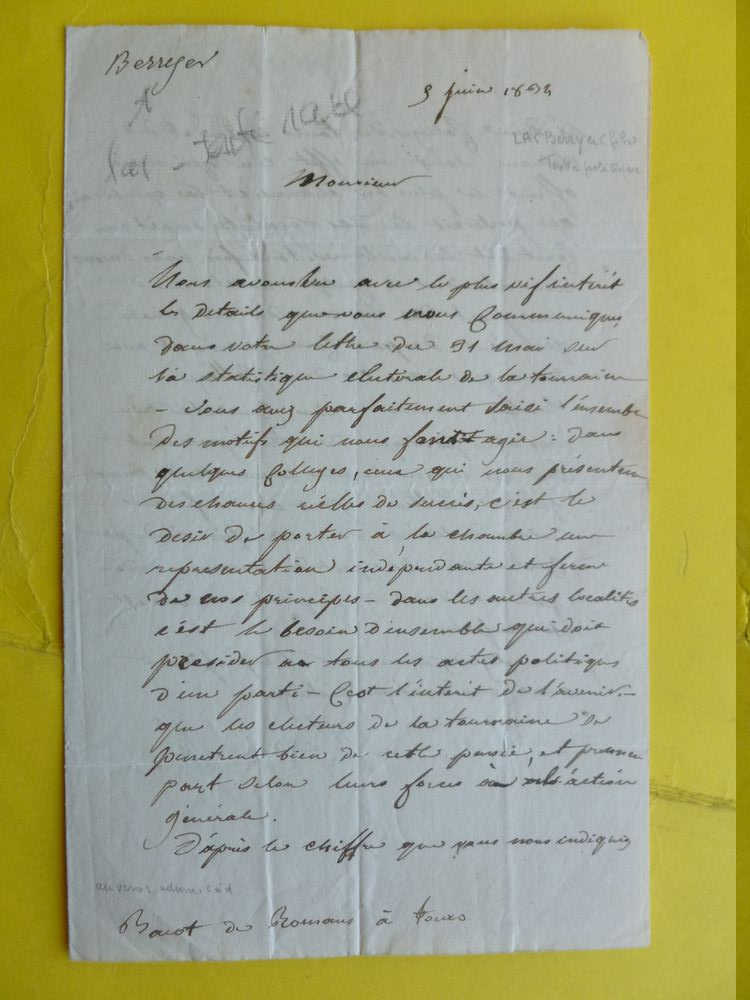 Berryer
3 juin 1834
LAS Berryer fils
Texte politique
Monsieur
Nous avons lu avec le plus vif intérêt
les détails que vous nous Communiquez
dans votre lettre du 31 mai sur
la statistique électorale de la touraine
- Vous avez parfaitement saisi l'ensemble
des motifs qui nous font agir : dans
quelques Colleges, ceux qui nous présentent
des chances réelles de succès, c'est le
desir de porter à la chambre une
representation indépendante et ferme
de nos principes - dans les autres localités
c'est le besoin d'ensemble qui doit
presider à tous les actes politiques
d'un parti - C'est l'intérêt de l'avenir -
que les electeurs de la touraine se
penetrent bien de cette pensée, et prennent
part selon leurs forces à l'action
générale.
D'après le chiffre que vous nous indiquez
au verso adresse
Bacot de Romans à tours